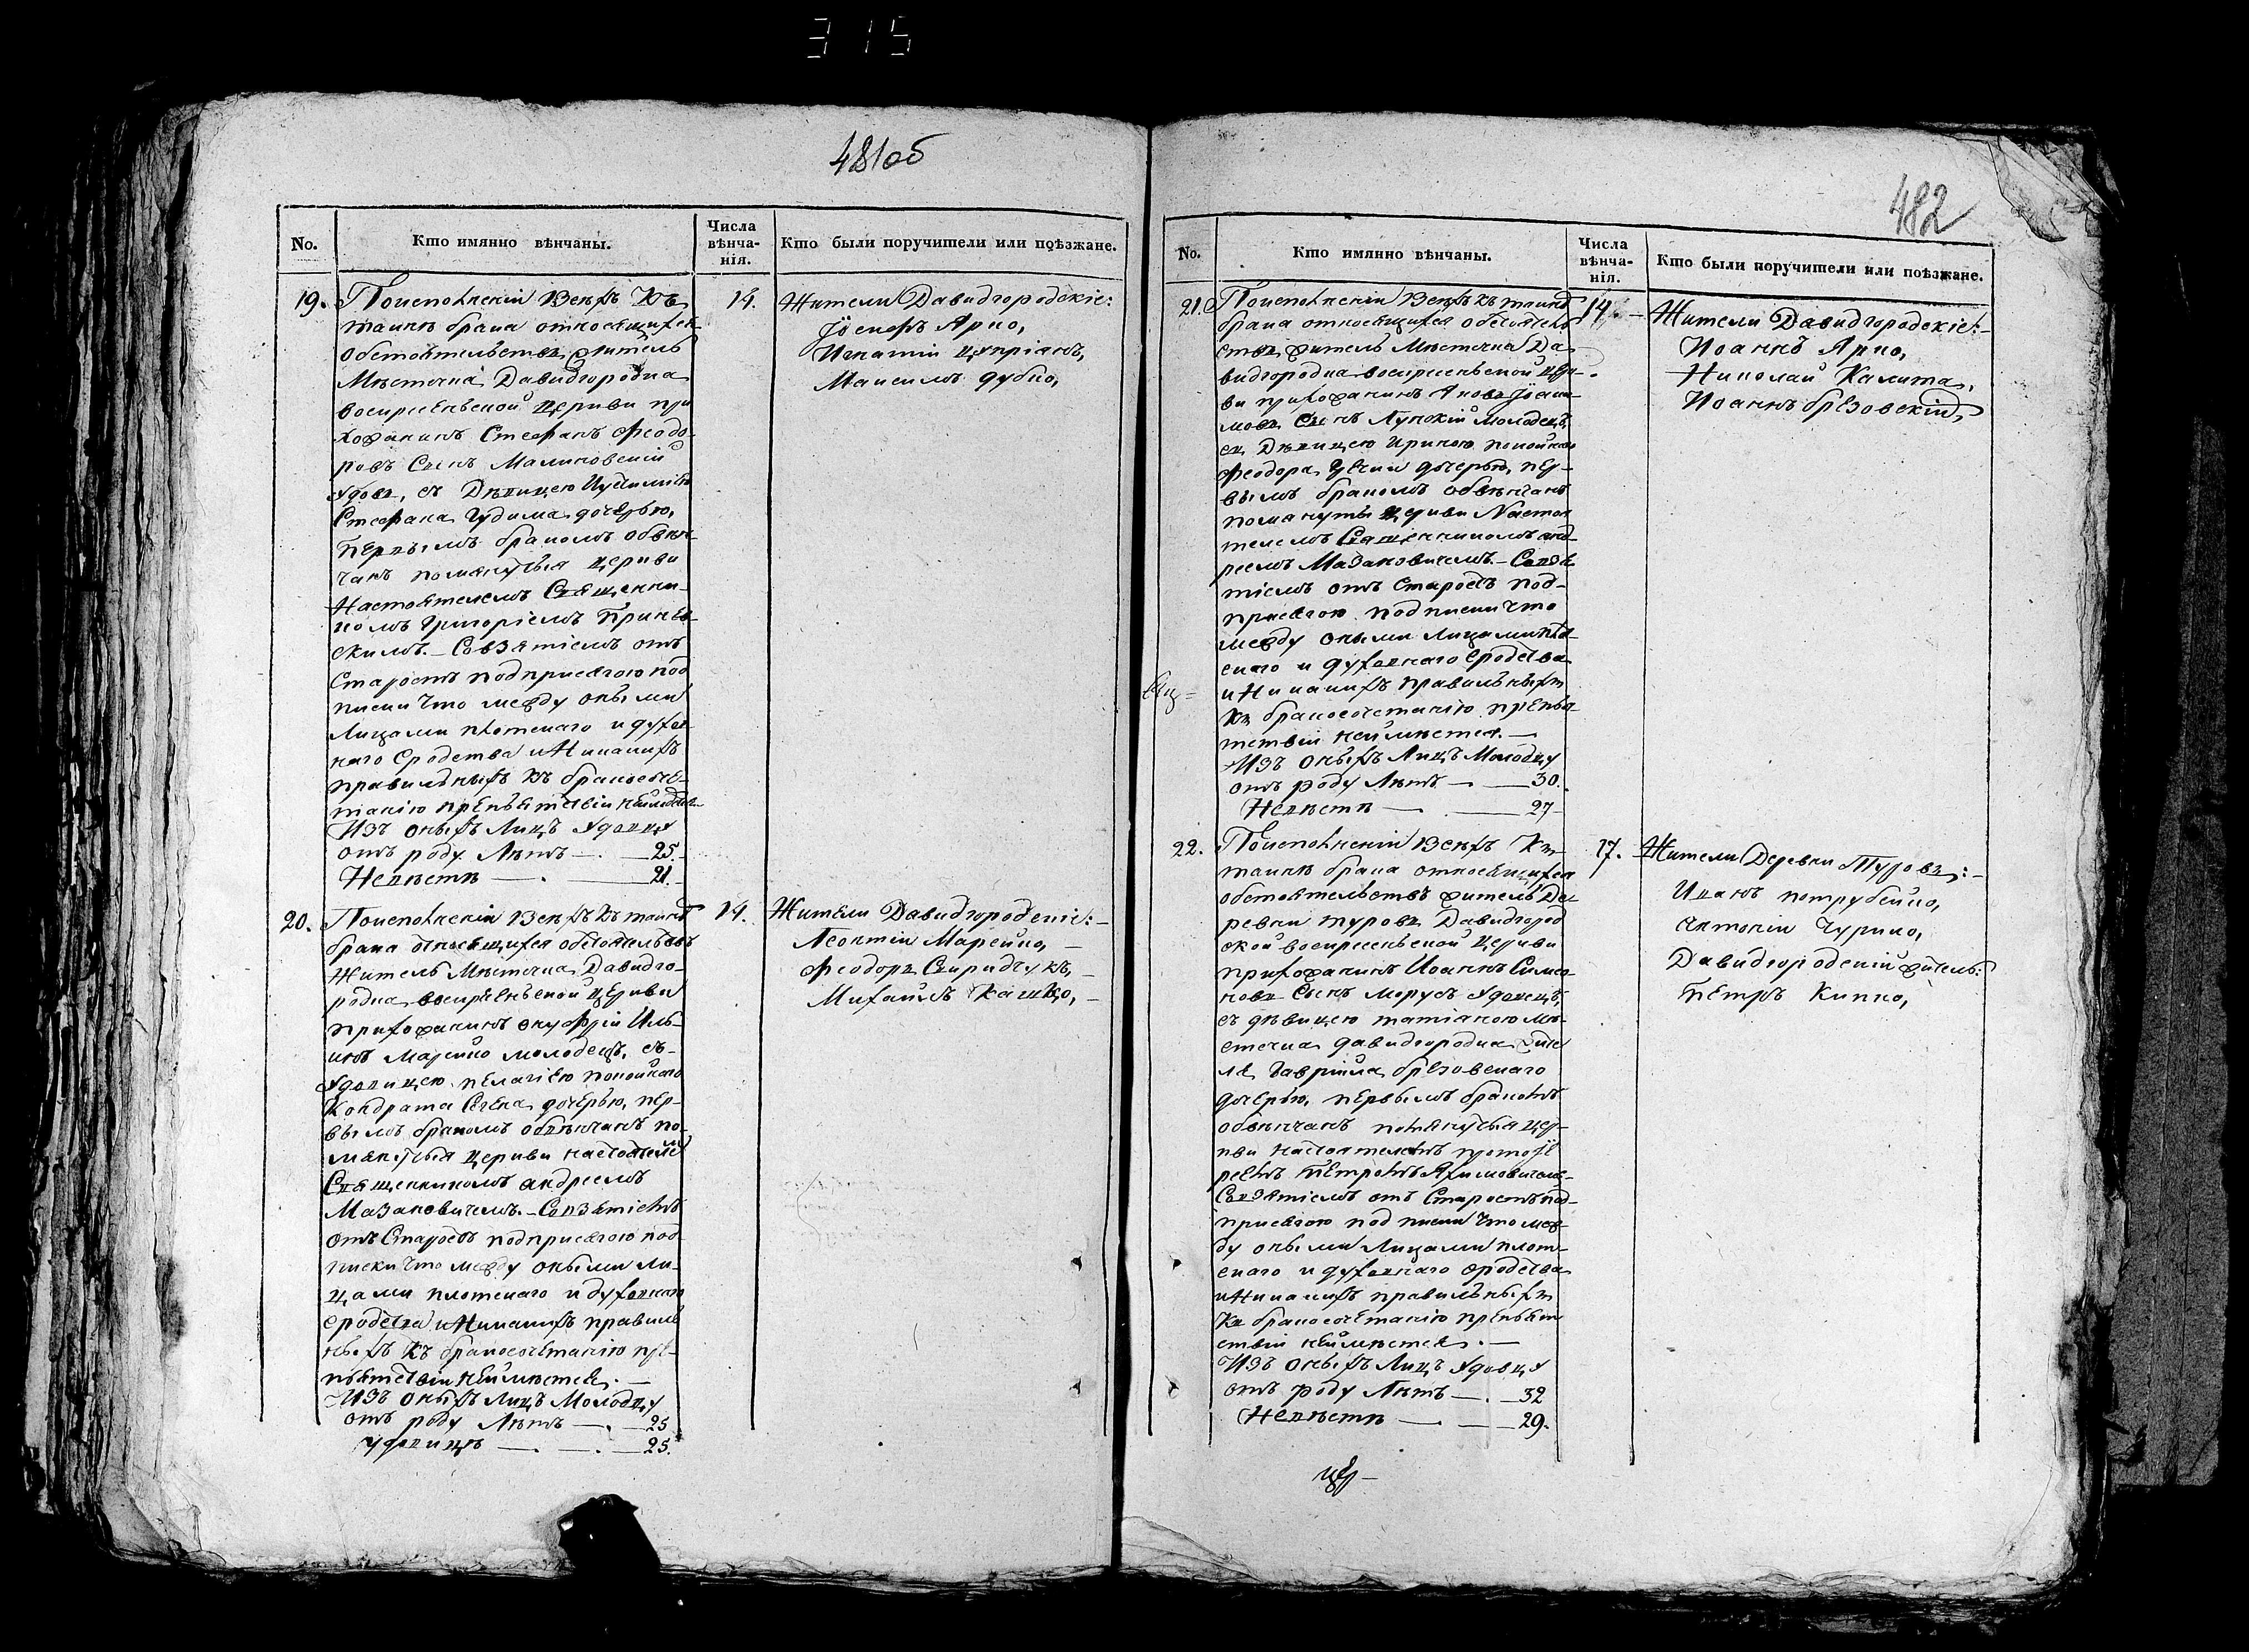 315
481об
No.
Кто имянно вѣнчаны.
Числа вѣнча-нія.
Кто были поручители или поѣзжане.
19.
По исполненіи всехъ къ
таинѣ брака относящихся
обстоятельствъ житель
Мѣстечка Давидгородка
воскресенской Церкви при
хожанинъ Стефанъ Феодо-
ровъ Сынъ Малиновский
Удовъ, съ Дѣвицею
Стефана Гудима дочерью,
первымъ бракомъ обвѣн-
чанъ помянутыя церкви
Настоятелемъ Священни-
комъ Григоріемъ
Совзятіемъ отъ
Старостъ подприсягою под
писки что между оными
Лицами плотскаго и духов
наго Сродства и Никакихъ
правильныхъ къ бракосоче-
танію препятствій неимѣется
Изъ оныхъ Лицъ Удовцу
отъ роду Лѣтъ — 25.
Невѣстѣ — 21.
14.
Жители Давидгородскіе:
Іосифъ Ярко,
Игнатій Цупріянъ,
Мануилъ Дубко,
20.
По исполненіи всехъ къ таинѣ
брака относящихся обстоятельствъ
Житель Мѣстечка Давидго-
родка воскресенской Церкви
прихожанинъ онуфрій Иль-
инъ Марейко молодецъ, съ-
Удовицею пелагіею покойнаго
Кондрата дочерью, пер-
вымъ бракомъ обвѣнчанъ по-
мянутыя Церкви настоятелемъ
Священникомъ андреемъ
Мазановичемъ. – Совзятіемъ
отъ Старостъ подприсягою под-
писки что между оными ли-
цами плотскаго и духовнаго
сродства и Никакихъ правиль
ныхъ къ бракосочетанію пре-
пятствій неимѣется. —
Изъ оныхъ Лицъ Молодцу
отъ роду Лѣтъ — 25
Удовицѣ — 25.
14.
Жители Давидгородскіе:
Леонтій Марейко, –
Феодоръ Свиридчукъ, –
Михаилъ Кашко, –
482
No.
Кто имянно вѣнчаны.
Числа вѣнча-нія.
Кто были поручители или поѣзжане.
21.
По исполненіи всехъ къ таинѣ
брака относящихся обстоятель
ствъ житель Мѣстечка Да
видгородка воскресенской Цер-
ви прихожанинъ Яковъ
Сынъ Лупокій Молодецъ,
съ Дѣвицею Ириною покойнаго
Феодора дочерью, пер-
вымъ бракомъ обвѣнчанъ
помянуты Церкви Настоя
телемъ Священникомъ анд-
реемъ Мазановичемъ. – Совзя
тіемъ отъ Старостъ под-
присягою подписки что
между оными Лицами плот-
скаго и духовнаго сродства
и Никакихъ правильныхъ
къ бракосочетанію препя-
тствій неимѣется. —
Изъ оныхъ Лицъ Молодцу
отъ роду Лѣтъ — 30.
Невѣстѣ — 27
14.
Жители Давидгородскіе:
Иоаннъ Ярко,
Николай Калита,
Иоаннъ брезовскій,
22.
По исполненіи всехъ къ
таинѣ брака относящихся
обстоятельствъ житель Де-
ревни туровъ Давидгород
ской воскресенской Церкви
прихожанинъ Иоаннъ Симео-
новъ Сынъ Морусъ Удовецъ,
съ дѣвицею татіаною Мѣ-
стечка давидгородка жите
ля Гавріила брезовскаго
дочерью, первымъ бракомъ
обвѣнчанъ помянутыя цер-
кви настоятелемъ протоіе
реемъ Петромъ
Совзятіемъ отъ Старостъ под-
присягою подписки что меж-
ду оными Лицами плот-
скаго и духовнаго сродства
и Никакихъ правильныхъ
къ бракосочетанію препят
ствій неимѣется. —
Изъ оныхъ Лицъ Удовцу
отъ роду Лѣтъ — 32
Невѣстѣ — 29.
17.
Жители Деревни Туровъ:
Иванъ потрубейко,
антоній Чурило,
Давидгородскій житель:
Петръ Кипко,